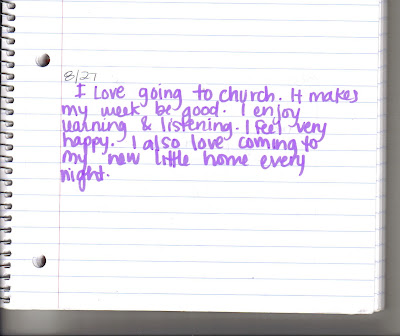 8/27
I Love going to church. It makes
my week be good. I enjoy
learning & listening. I feel very
happy. I also love coming to
my new little home every
night.